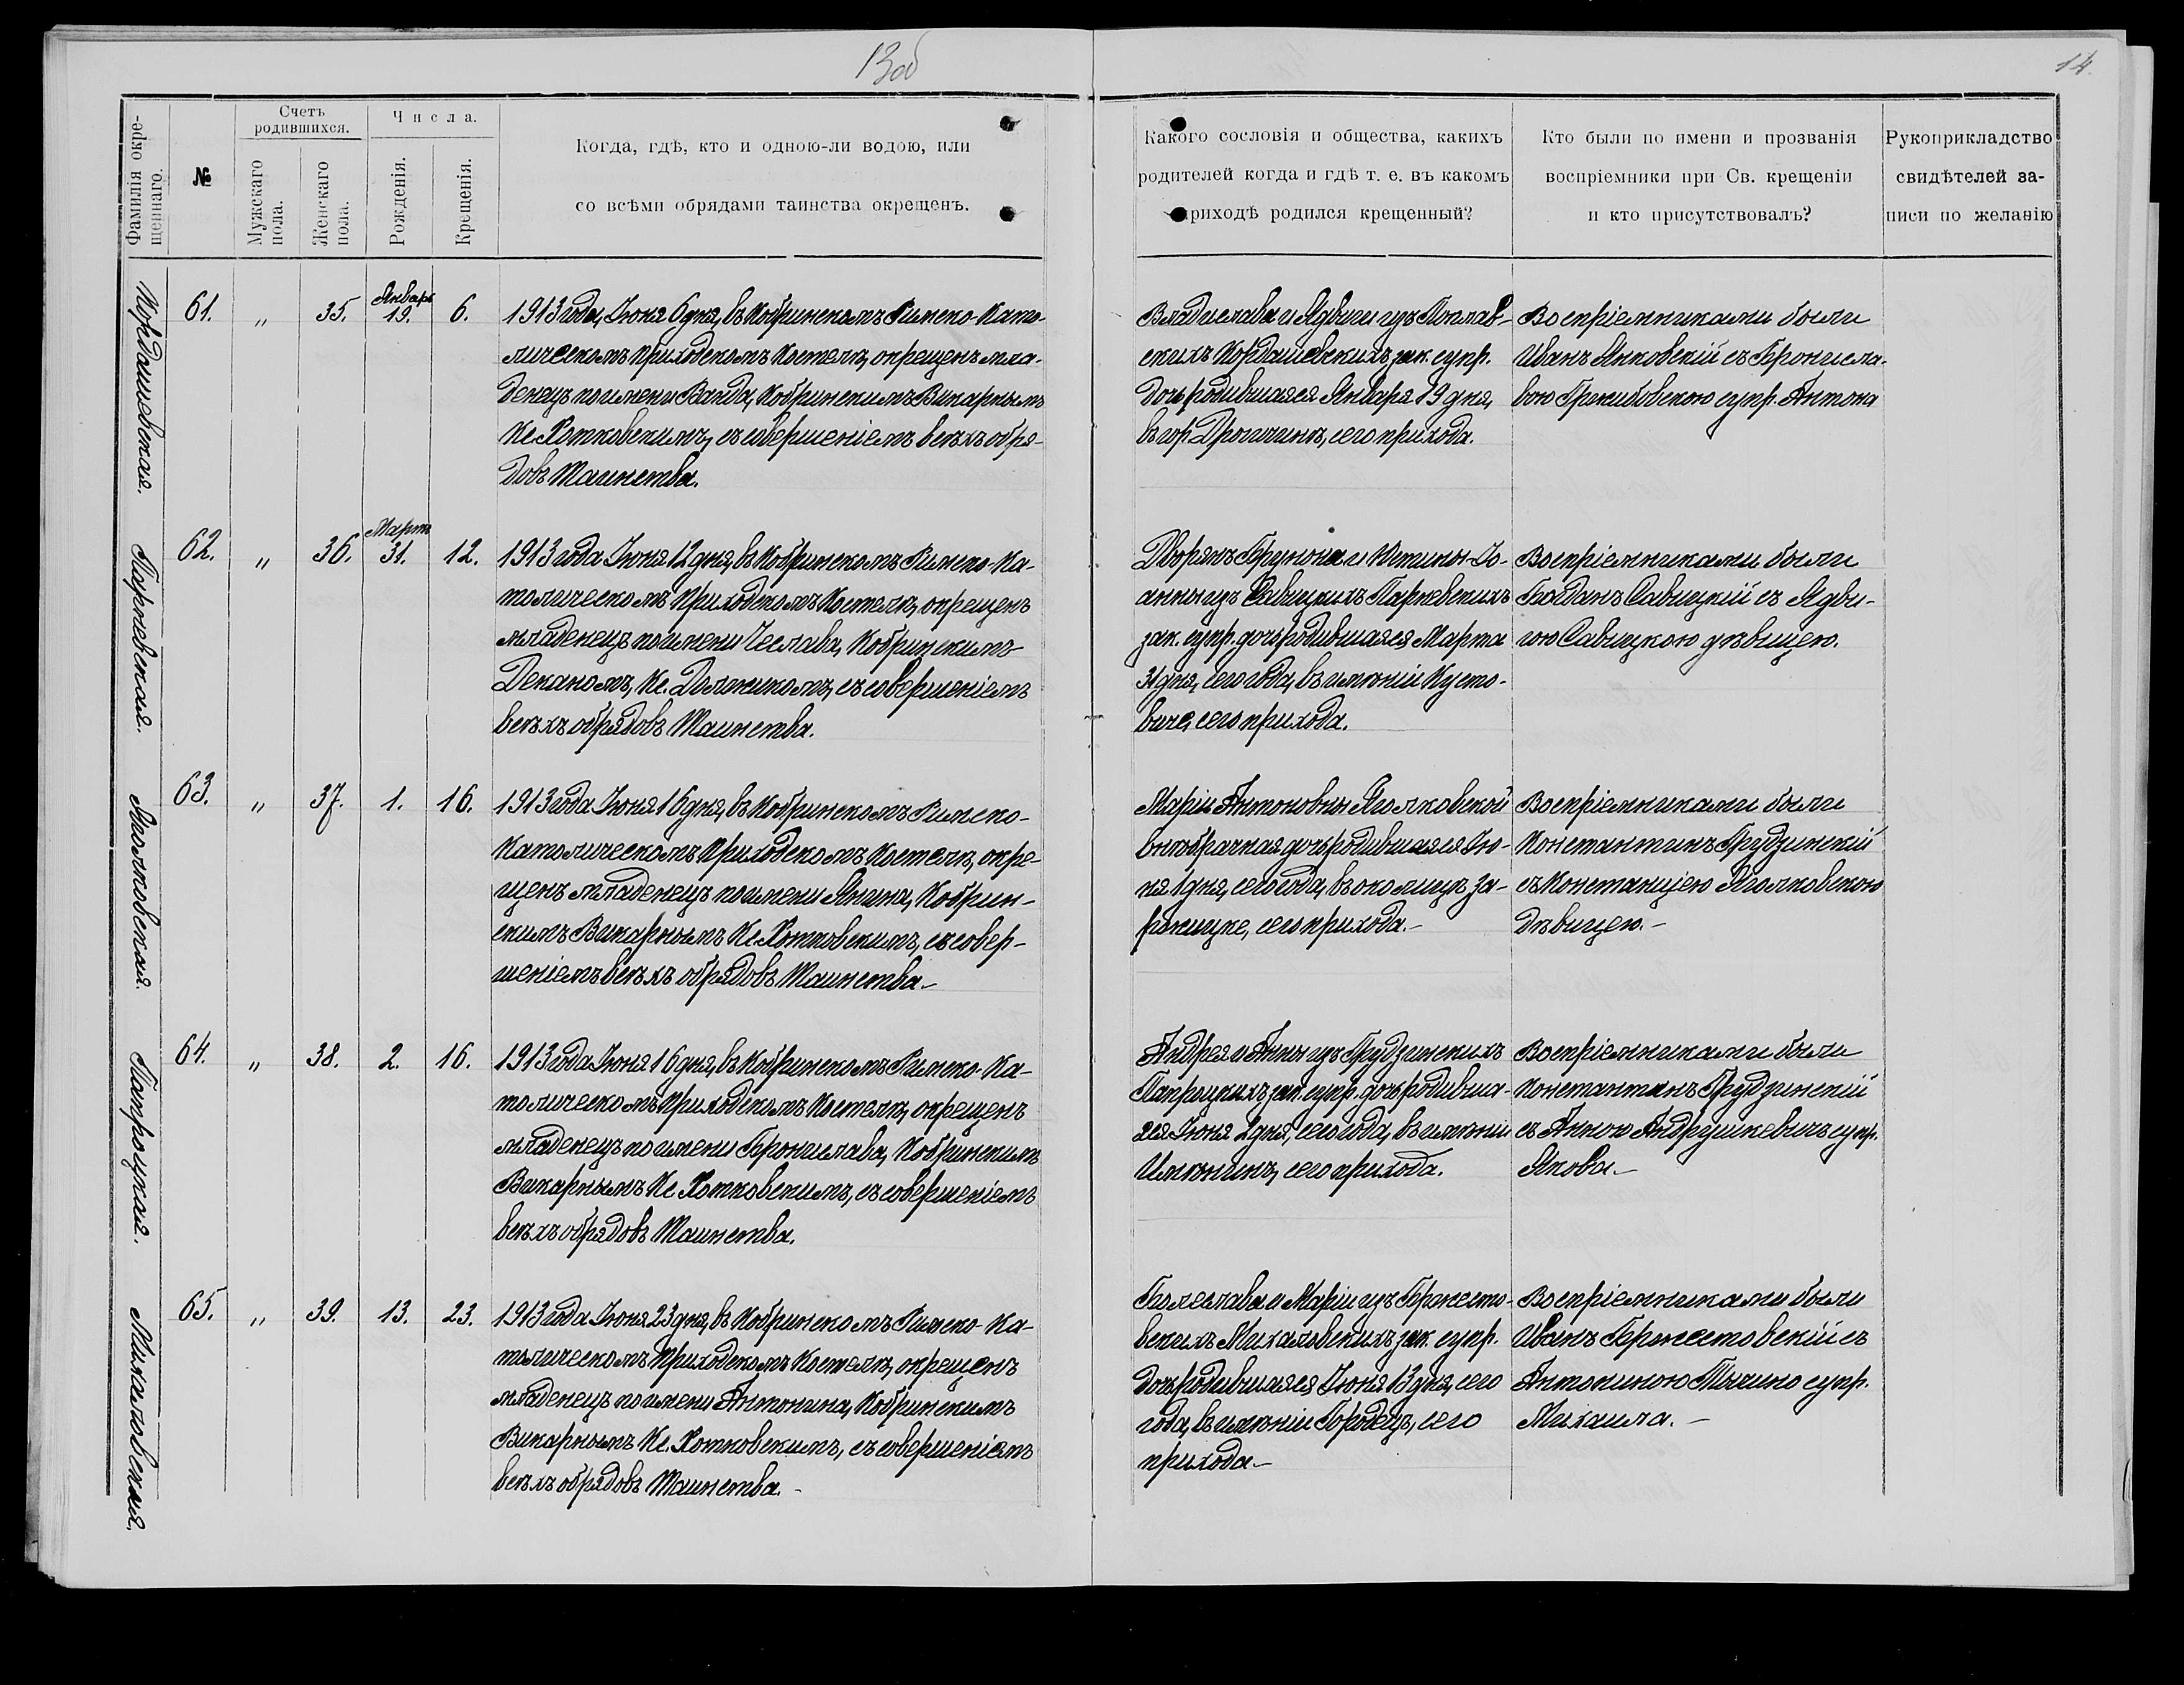 13об
14.
Фамилія окре-
щеннаго.
№
Счетъ
родившихся.
Мужскаго
пола.
Женскаго
пола.
Числа.
Рожденія.
Крещенія.
Когда, гдѣ, кто и одною-ли водою, или
со всѣми обрядами таинства окрещенъ.
Какого сословія и общества, какихъ
родителей когда и гдѣ т. е. въ какомъ
приходѣ родился крещенный?
Кто были по имени и прозванія
воспріемники при Св. крещеніи
и кто присутствовалъ?
Рукоприкладство
свидѣтелей за-
писи по желанію
Кордашевская.
61. " 35. Январь 19. 6.
1913 года, Іюня 6 дня, въ Кобринскомъ Римско-Като-
лическомъ Приходскомъ Костелѣ, окрещенъ мла-
денецъ по имени Ванда, Кобринскимъ Викарнымъ
Кс. Хотковскимъ, съ совершеніемъ всѣхъ обря-
довъ Таинства.
Владислава и Ядвиги изъ Поплав-
скихъ Кордашевскихъ зак. супр.
дочь родившаяся Января 19 дня,
въ гор. Дрогичинѣ, сего прихода.
Воспріемниками были
Иванъ Янковскій съ Брониcла-
вою Гржибовскою супр. Антона
Паржевская.
62. " 36. Мартъ 31. 12.
1913 года Іюня 12 дня, въ Кобринскомъ Римско-Ка-
толическомъ Приходскомъ Костелѣ, окрещенъ
младенецъ по имени Чеслава, Кобринскимъ
Деканомъ, Кс. Должикомъ, съ совершеніемъ
всѣхъ обрядовъ Таинства.
Дворянъ Брунона и Юстины-Іо-
анны изъ Савицкихъ Паржевскихъ
зак. супр. дочь родившаяся Марта
31 дня, сего года, въ имѣніи Кусто-
виче, сего прихода.
Воспріемниками были
Богданъ Савицкій съ Ядви-
гою Савицкою дѣвицею.
Яголковская.
63. " 37. 1. 16.
1913 года Іюня 16 дня, въ Кобринскомъ Римско-
Католическомъ Приходскомъ Костелѣ, окре-
щенъ младенецъ по имени Янина, Кобрин-
скимъ Викарнымъ Кс. Хотковскимъ, съ совер-
шеніемъ всѣхъ обрядовъ Таинства.-
Маріи Антоновны Яголковской
внѣбрачная дочь родившаяся Ію-
ня 1 дня, сего года, въ околицѣ За-
ржицке, сего прихода.-
Воспріемниками были
Константинъ Грудзинскій
съ Констанціею Яголковскою
дѣвицею.-
Папроцкая.
64. " 38. 2. 16.
1913 года Іюня 16 дня, въ Кобринскомъ Римско-Ка-
толическомъ Приходскомъ Костелѣ, окрещенъ
младенецъ по имени Бронислава, Кобринскимъ
Викарнымъ Кс. Хотковскимъ, съ совершеніемъ
всѣхъ обрядовъ Таинства.
Андрея и Анны изъ Грудзинскихъ
Папроцкихъ зак. супр. дочь родивша-
яся Іюня 2 дня, сего года, въ имѣніи
Имѣнинѣ, сего прихода.
Воспріемниками были
Константинъ Грудзинскій
съ Анною Андрушкевичъ супр.
Якова.-
Михаловская.
65. " 39. 13. 23.
1913 года Іюня 23 дня, въ Кобринскомъ Римско-Ка-
толическомъ Приходскомъ Костелѣ, окрещенъ
младенецъ по имени Антонина, Кобринскимъ
Викарнымъ Кс. Хотковскимъ, съ совершеніемъ
всѣхъ обрядовъ Таинства.-
Болеслава и Маріи изъ Бржесто-
вскихъ Михаловскихъ зак. супр.
дочь родившаяся Іюня 13 дня, сего
года, въ имѣніи Городецъ, сего
прихода.-
Воспріемниками были
Иванъ Бржестовскій съ
Антониною Тычино супр.
Михаила.-